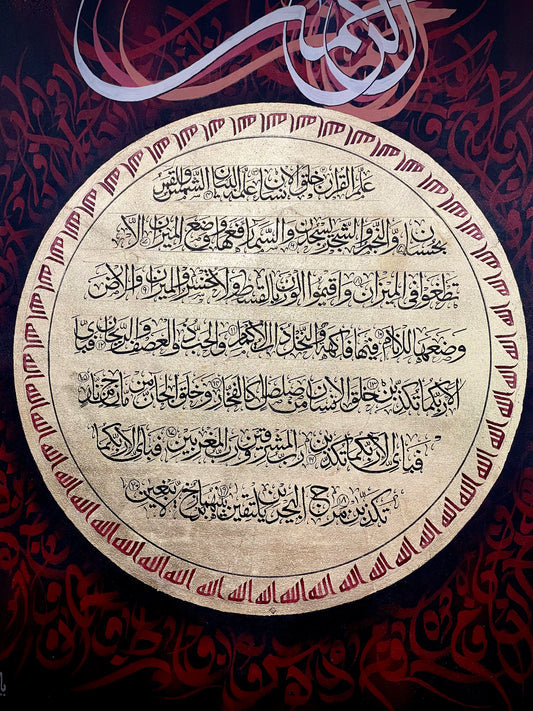 الرحمن
علم القرآن خلق الإنسان علمه البيان الشمس والقمر
بحسبان والنجم والشجر يسجدان والسماء رفعها ووضع الميزان ألا
تطغوا في الميزان وأقيموا الوزن بالقسط ولا تخسروا الميزان والأرض
وضعها للأنام فيها فاكهة والنخل ذات الأكمام والحب ذو العصف والريحان فبأي
آلاء ربكما تكذبان خلق الإنسان من صلصال كالفخار وخلق الجان من مارج من نار
فبأي آلاء ربكما تكذبان رب المشرقين ورب المغربين فبأي آلاء ربكما
تكذبان مرج البحرين يلتقيان بينهما برزخ لا يبغيان
الله الله الله الله الله الله الله الله الله الله الله الله